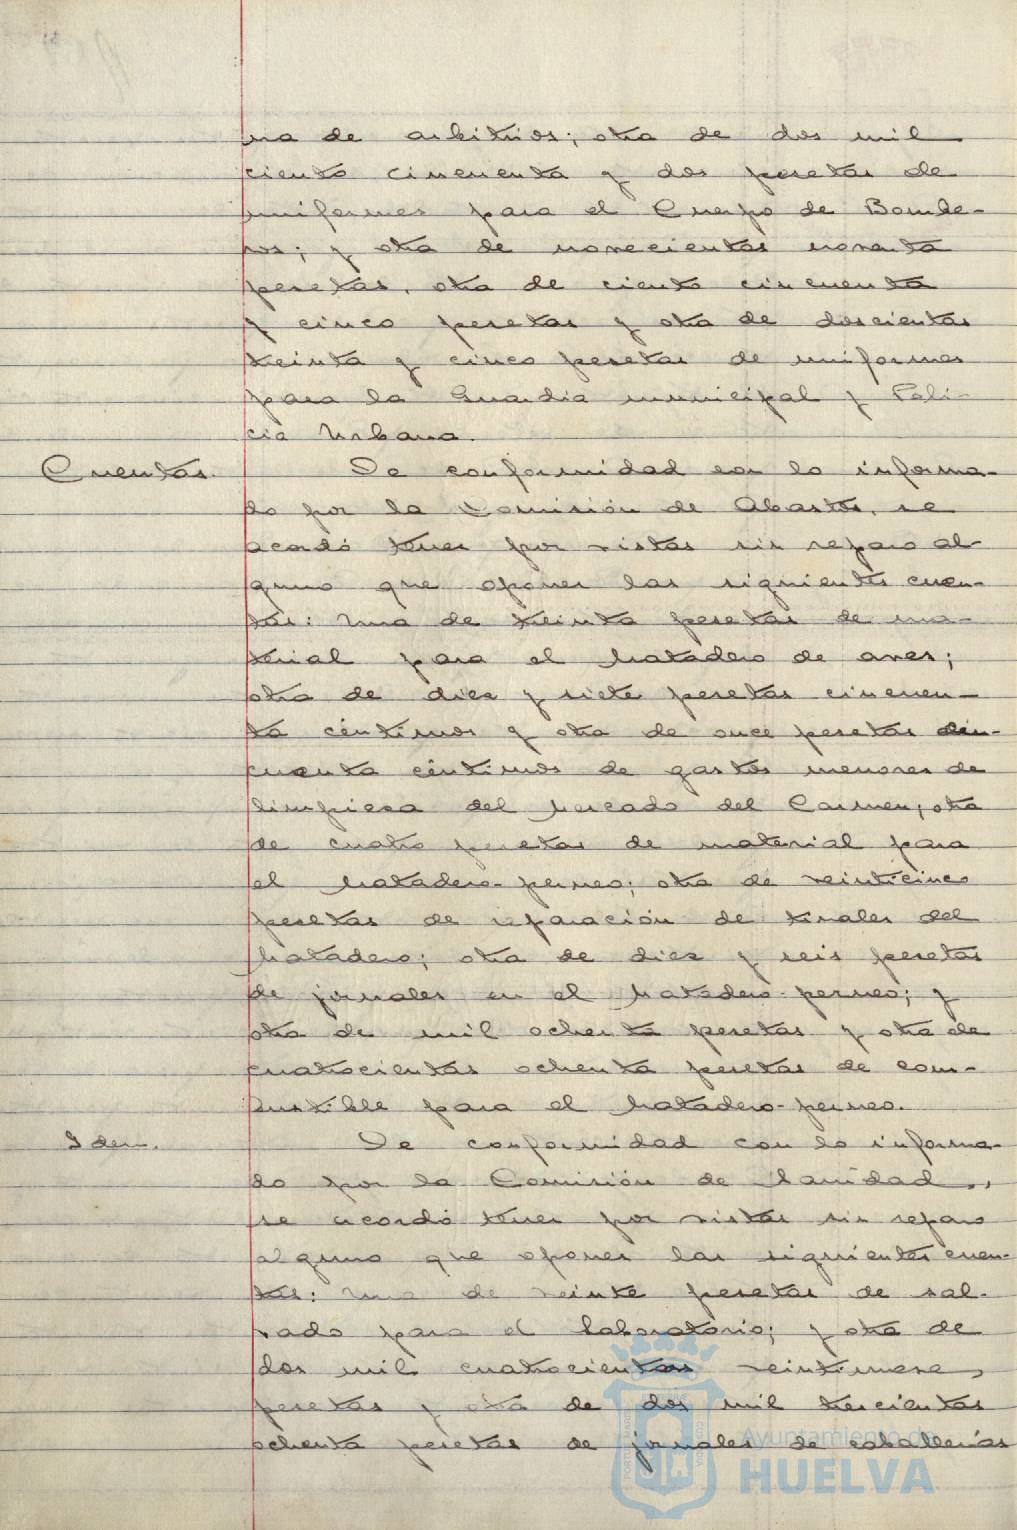 na de arbitrios; otra de dos mil
ciento cincuenta y dos pesetas de
uniformes para el Cuerpo de Bombe-
ros; y otra de novecientas noventa
pesetas, otra de ciento cincuenta
y cinco pesetas y otra de doscientas
treinta y cinco pesetas de uniformes
para la Guardia municipal y Poli-
cia Urbana.
Cuentas. De conformidad con lo informa-
do por la Comisión de Abastos, se
acordó tener por vistas sin reparo al-
guno que oponer las siguientes cuen-
tas: Una de treinta pesetas de ma-
terial para el Matadero de aves;
otra de diez y siete pesetas cincuen-
ta céntimos y otra de once pesetas cin-
cuenta céntimos de gastos menores de
limpieza del Mercado del Carmen; otra
de cuatro pesetas de material para
el Matadero-perneo; otra de veinticinco
pesetas de reparación de tirales del
Matadero; otra de diez y seis pesetas
de jornales en el Matadero-perneo; y
otra de mil ochenta pesetas y otra de
cuatrocientas ochenta pesetas de com-
bustible para el Matadero-perneo.
Idem. De conformidad con lo informa-
do por la Comisión de Sanidad,
se acordó tener por vistas sin reparo
alguno que oponer las siguientes cuen-
tas: Una de veinte pesetas de sal-
vado para el laboratorio; y otra de
dos mil cuatrocientas veintinueve
pesetas y otra de dos mil trescientas
ochenta pesetas de jornales de caballerías
Ayuntamiento de
HUELVA